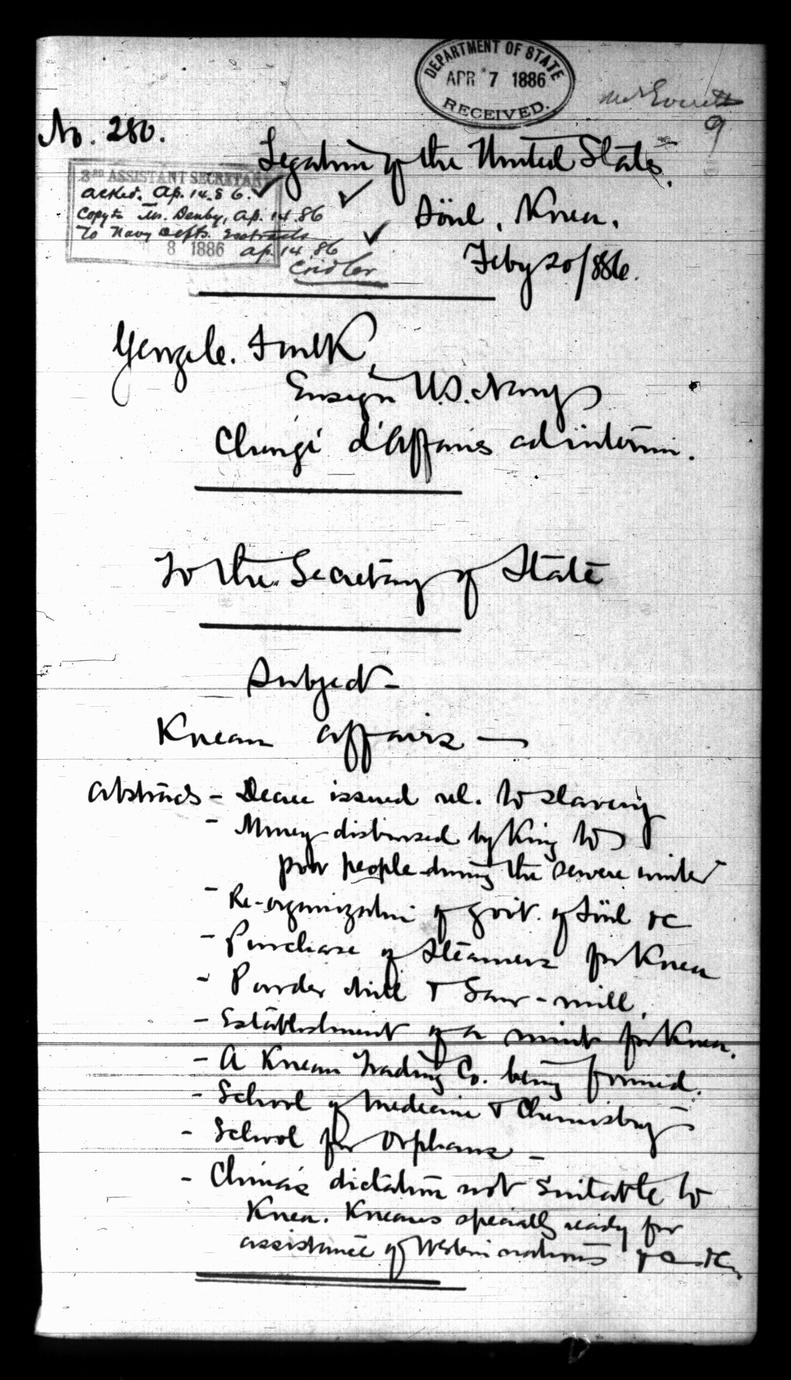 DEPARTMENT OF STATE
APR 7 1886
RECEIVED.
Mr Everett
9
No. 280.
Legation of the United States,
3RD ASSISTANT SECRETARY
ackd. Ap. 14. 86.
Copy to Mr. Denby, Ap. 14 86
To Navy Dept. Extracts
8 1886 ap. 14 86
Cridler
Söul, Korea.
Feby 20/886.
George C. Foulk,
Ensign U.S. Navy
Chargé d'Affaires ad interim.
To the Secretary of State
Subject -
Korean affairs —
Abstracts - Decree issued rel. to slavery
- Money disbursed by King to
poor people during the severe winter
- Re-organization of govt. of Söul &c
- Purchase of Steamers for Korea
- Powder Mill & Saw-mill,
- Establishment of a mint for Korea.
- A Korean Trading Co. being formed.
- School of Medicine & Chemistry -
- School for Orphans -
- China's dictation not suitable to
Korea. Koreans specially ready for
assistance of Western nations &c &c,